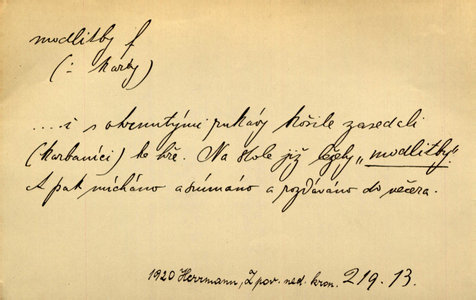 modlitby f
(= karty)
.... i s ohrnutými rukávy košile zasedali
(karbaníci) ke hře. Na stole již ležely „modlitby".
A pak mícháno a snímáno a rozdáváno do večera.
1920 Herrmann, Z pov. ned. kron. 219. 13.